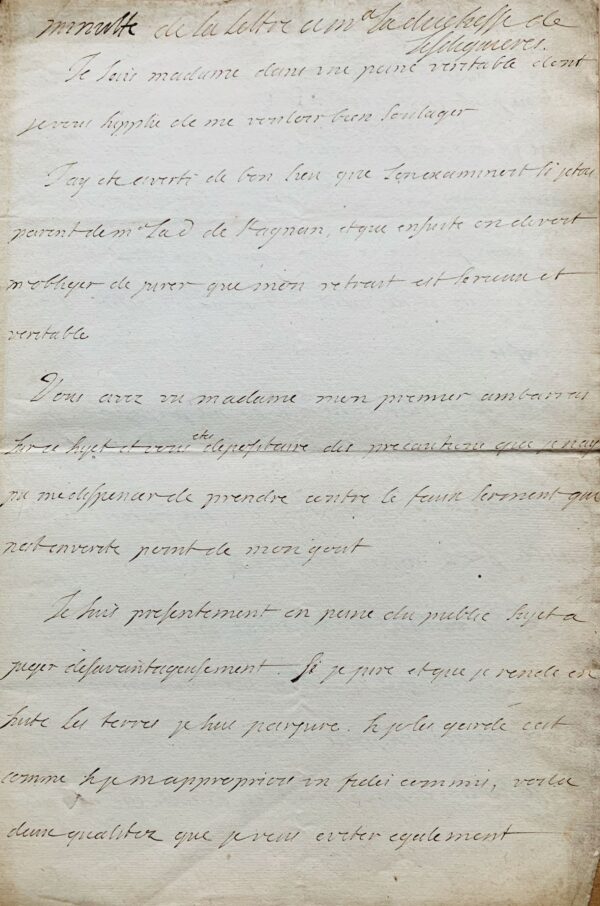 minutte de la lettre a m^e la duchesse de
Lesdiguieres.
Je suis madame dans une peine veritable dont
je vous supplie de me vouloir bien soulager
J'ay ete averti de bon lieu que l'on examineroit si j'etois
parent de m^e la d de Ragnan, et que ensuite on devoit
m'obliger de jurer que mon retrait est serieux et
veritable
Vous avez vu madame mon premier ambarras
sur ce sujet et vous etes depositaire des precautions que je nay
pu me dispencer de prendre contre le faux serment qui
nest en verite point de mon gout
Je suis presentement en peine du public sujet a
juger desavantageusement. Si je jure et que je rende en
suite les terres je suis parjure. si je les garde cest
comme si je m'appropriois un fidei commis, voila
deux qualitez que je veus eviter egalement